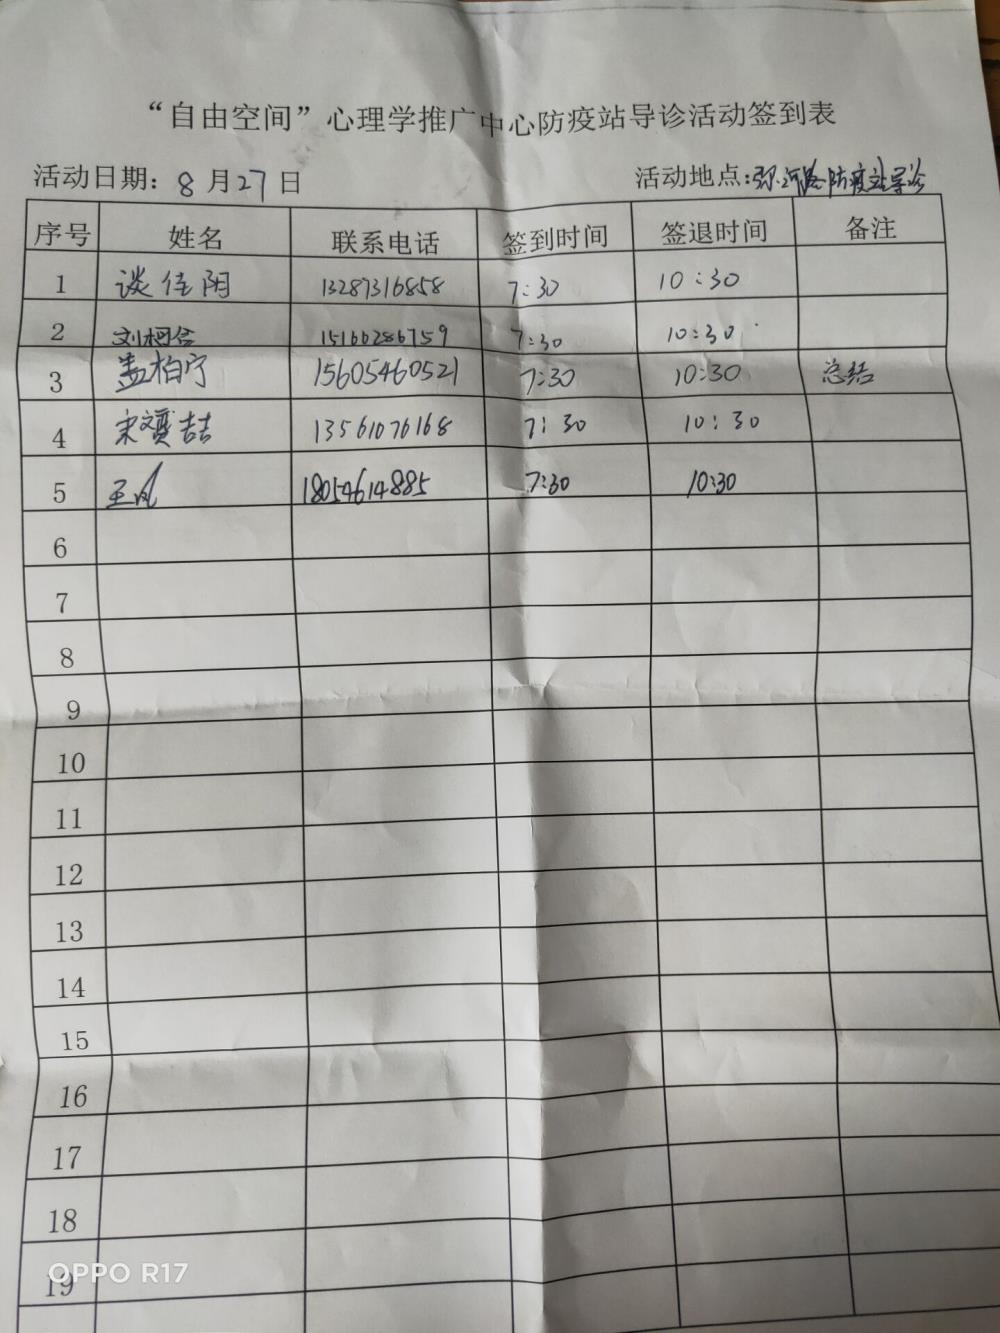 “自由空间”心理学推广中心防疫站导诊活动签到表
活动日期：8月27日 活动地点：弥河路防疫站导诊
序号 姓名 联系电话 签到时间 签退时间 备注
1 谈佳阴 13287316858 7:30 10:30
2 刘柯含 15166286759 7:30 10:30
3 孟柏宁 15605460521 7:30 10:30 总结
4 宋赟喆 13561076168 7:30 10:30
5 王凡 18054614885 7:30 10:30
6
7
8
9
10
11
12
13
14
15
16
17
18
19
OPPO R17